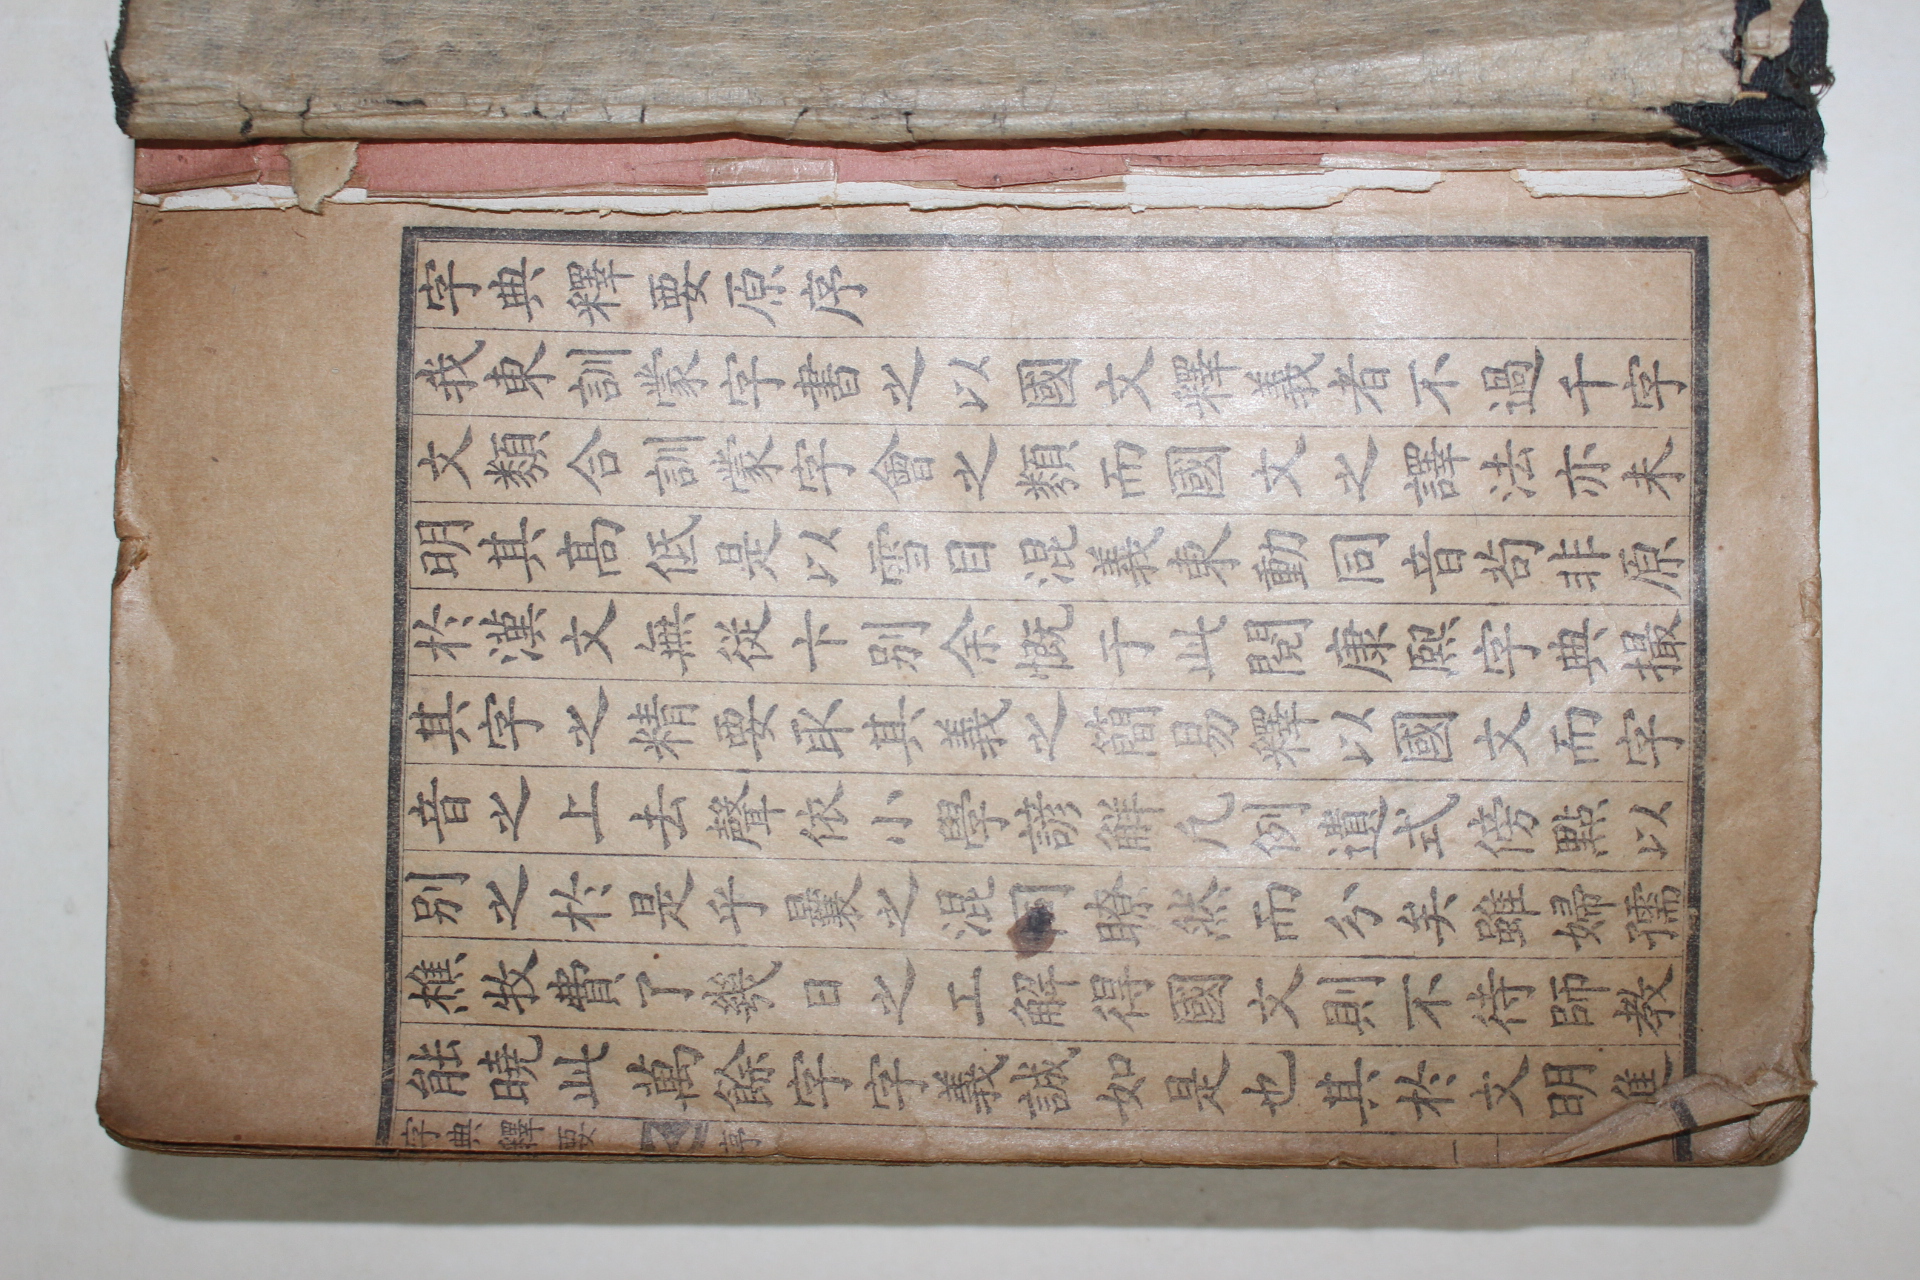 字典釋要原序
我東訓蒙字書之以國文釋義者不過千字
文類合訓蒙字會之類而國文之譯法亦未
明其高低是以雪目混義東動同音苟非原
於漢文無從卞別余慨于此閱康熙字典撮
其字之精要取其義之簡易釋以國文而字
音之上去聲依小學諺解凡例遺式傍點以
別之於是乎曩之混同瞭然而分矣雖婦孺
樵牧費了幾日之工解得國文則不待師敎
能曉此萬餘字字義誠如是也其於文明進
字典釋要 序 一